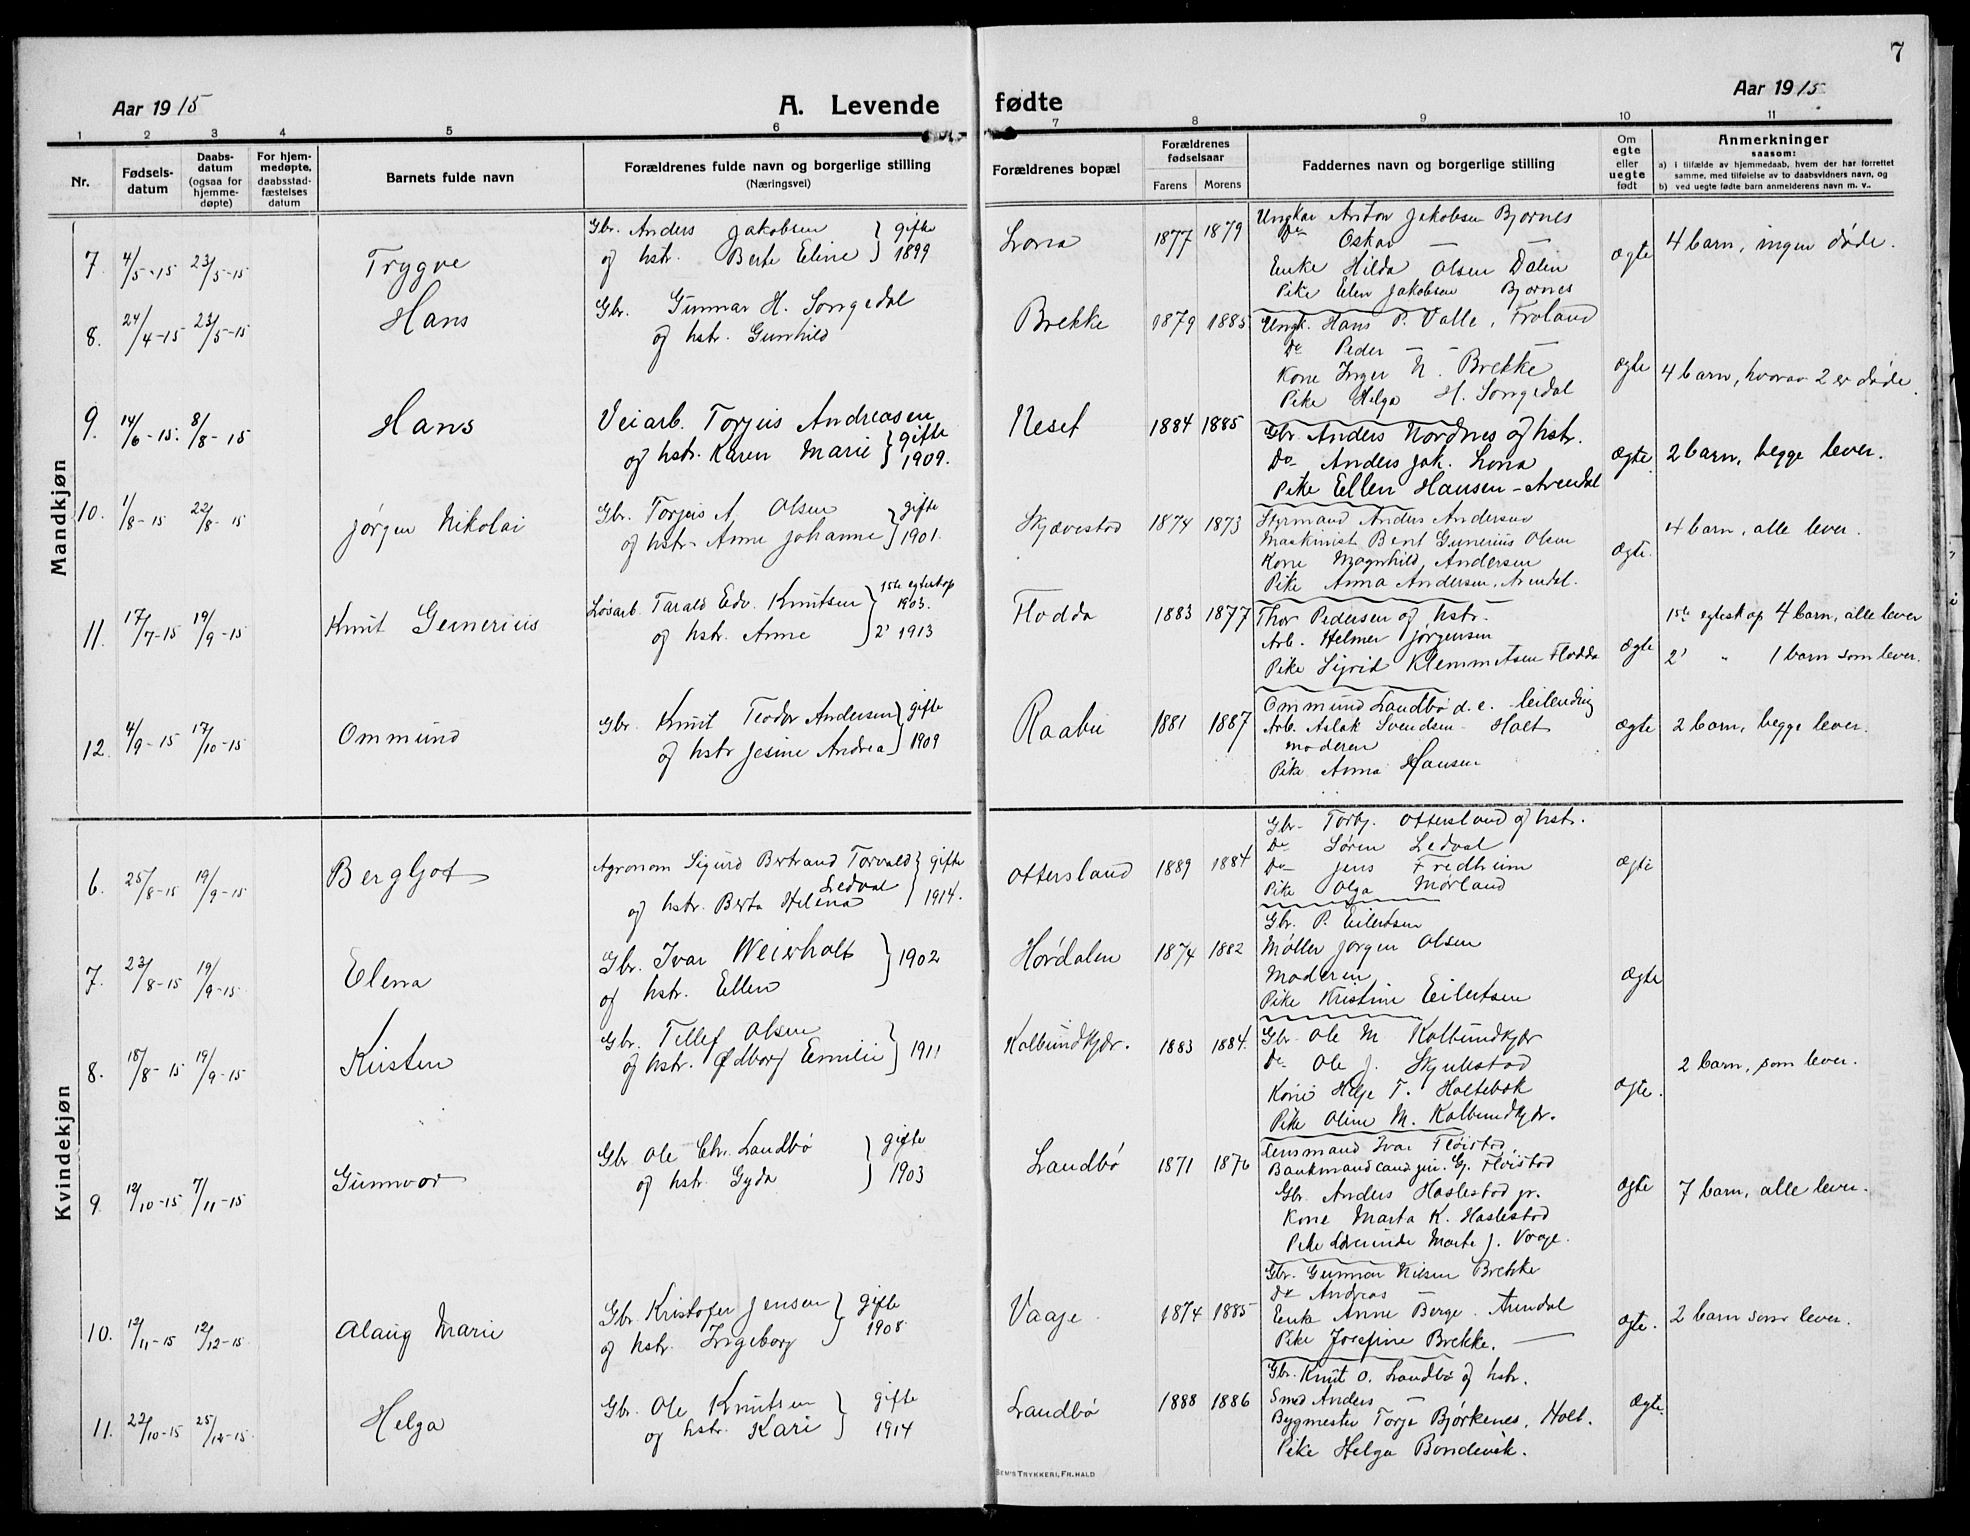 7
Aar 1915
A. Levende fødte
Aar 1915
1 2 3 4 5 6 7 8 9 10 11
Nr.
Fødsels-
datum
Daabs-
datum
(ogsaa for
hjemme-
døpte)
For hjem-
medøpte,
daabsstad-
fæstelses
datum
Barnets fulde navn
Forældrenes fulde navn og borgerlige stilling
(Næringsvei)
Forældrenes bopæl
Forældrenes
fødselsaar
Farens Morens
Faddernes navn og borgerlige stilling
Om
egte
eller
uegte
født
Anmerkninger
saasom:
a) i tilfælde av hjemmedaab, hvem der har forrettet
samme, med tilføielse av to daabsvidners navn, og
b) ved uegte fødte barn anmelderens navn m. v..
Mandkjøn
7. 4/5-15 23/5-15 Trygve
Gbr. Anders Jakobsen } gifte
og hstr. Berte Eline } 1899
Lona 1877 1879
Ungkar Anton Jakobsen Bjornes
Do Oskar — —
Enke Hilda Olsen Dalen
Pike Elen Jakobsen Bjornes
Ægte
4 barn, ingen døde.
8. 24/4-15 23/5-15 Hans
Gbr. Gunnar H. Songedal
og hstr. Gunhild
Brekke 1879 1885
Ungk. Hans P. Valle, Froland
Do Peder — — —
Kone Inger N. Brekke
Pike Helga H. Songedal
Ægte
4 barn, hvorav 2 er døde.
9. 14/6-15. 8/8-15 Hans
Veiarb. Torjus Andreasen } gifte
og hstr. Karen Marie } 1909.
Neset 1884 1885
Gbr. Anders Nordnes og hstr.
Do Anders Jak. Lona
Pike Ellen Hansen - Arendal
Ægte.
2 barn, begge lever.
10. 1/8-15 22/8-15 Jørgen Nikolai
Gbr. Torjus A. Olsen } gifte
og hstr. Anne Johanne } 1901.
Skjævestad 1874 1873
Styrmand Anders Andersen
Maskinist Bent Gunerius Olsen
Kone Magnhild Andersen
Pike Anna Andersen, Arendal.
Ægte.
4 barn, alle lever.
11. 17/7-15 19/9-15 Knut Gunerius
Løsarb. Tarald Edv. Knutsen } 1ste egteskap 1903.
og hstr. Anne } 2' 1913
Flodda 1883 1877
Thor Pedersen og hstr.
Arb. Helmer Jørgensen
Pike Sigrid Klemmetsen Flodda
Ægte
1ste egteskap 4 barn, alle lever
2' " 1 barn som lever.
12. 4/9-15 17/10-15 Ommund
Gbr. Knut Teodor Andersen } gifte
og hstr Jesine Andrea } 1909
Raabu 1881 1887
Ommund Landbø d. e. leilending
Arb. Aslak Svendsen - Holt
Moderen
Pike Anna Hansen
Ægte
2 barn, begge lever.
Kvindekjøn
6. 25/8-15 19/9-15 Bergljot
Agronom Sigurd Bertrand Torvald Ledval } gifte
og hstr. Berta Helena } 1914.
Ottersland 1889 1884
Gbr. Torbj. Ottersland og hstr.
Do Søren Ledval
Do Jens Fredheim
Pike Olga Mørland
Ægte
7. 23/8-15 19/9-15 Elena
Gbr. Ivar Weierholt } 1902
og hstr. Ellen
Hørdalen 1874 1882
Gbr. P. Eilertsen
Møller Jørgen Olsen
Moderen
Pike Kristine Eilertsen
Ægte
8. 18/8-15 19/9-15 Kirsten
Gbr. Tellef Olsen } 1911
og hstr. Ødborg Emilie
Kalbundkjær. 1883 1884.
Gbr. Ole M Kalbundkjær
Do Ole J. Skjulestad
Kone Helje T. Holtebæk
Pike Oline M. Kalbundkjær.
Ægte.
2 barn, som lever.
9 12/10-15 7/11-15 Gunnvor
Gbr Ole Chr. Landbø } gifte
og hstr. Gyda } 1903
Landbø 1871 1876
Lensmand Ivar Fløistad
Bankmand cand. jur. G. Fløistad
Gbr. Anders Haslestad jr.
Kone Marta K. Haslestad
Pike Lovinde Marte J. Vaaje.
Ægte
7 barn, alle lever.
10. 12/11-15 12/12-15 Alaug Marie
Gbr Kristofer Jensen } gifte
og hstr. Ingeborg } 1908
Vaaje 1874 1885
Gbr. Gunnar Nilsen Brekke
Do Andreas — —
Enke Anne Berge. Arendal
Pike Josefine Brekke. —
Ægte.
2 barn som lever.
11. 22/10-15 25/12-15. Helga
Gbr. Ole Knutsen } gifte
og hstr. Kari } 1914
Landbø 1888 1886
Gbr. Knut O. Landbø og hstr.
Smed Anders —
Bygmester Torje Bjørkenes, Holt.
Pike Helga Bondevik.
Ægte.
SEM'S TRYKKERI, FR.HALD